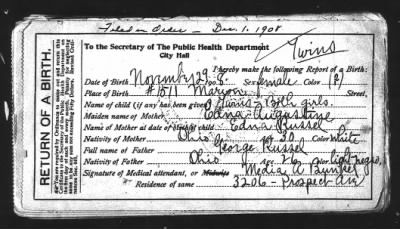 Filed in Order - Dec. 1. 1908
To the Secretary of The Public Health Department
City Hall
Twins
I hereby make the following Report of a Birth:
Date of Birth November 29 1908. Sex Female Color (?)
Place of Birth #1511 Maryon Street.
Name of child (if any has been given) Twins - Both girls.
Maiden name of Mother Edna Augustine
Name of Mother at date of birth of child Edna Russel
Nativity of Mother Ohio Age 20 Color White
Full name of Father George Russel
Nativity of Father Ohio Age 26 Color light negro.
Signature of Medical attendant, or Midwife Media A Bunker
Residence of same 3206 - Prospect Av
RETURN OF A BIRTH.